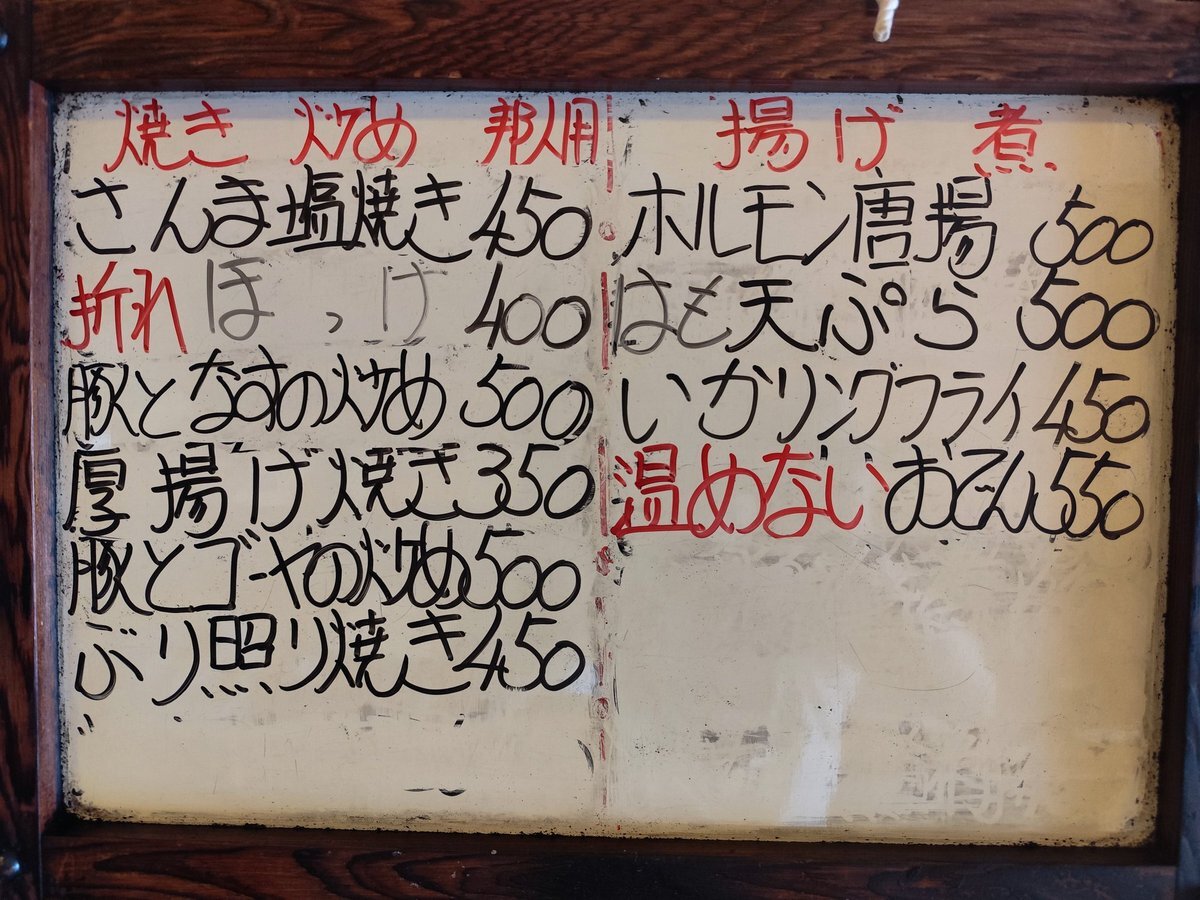 焼き 炒め 邦人用
さんま塩焼き 450
折れ ほっけ 400
豚となすの炒め 500
厚揚げ焼き 350
豚とゴーヤの炒め 500
ぶり照り焼き 450
揚げ 煮
ホルモン唐揚 500
はも天ぷら 500
いかリングフライ 450
温めないおでん 550